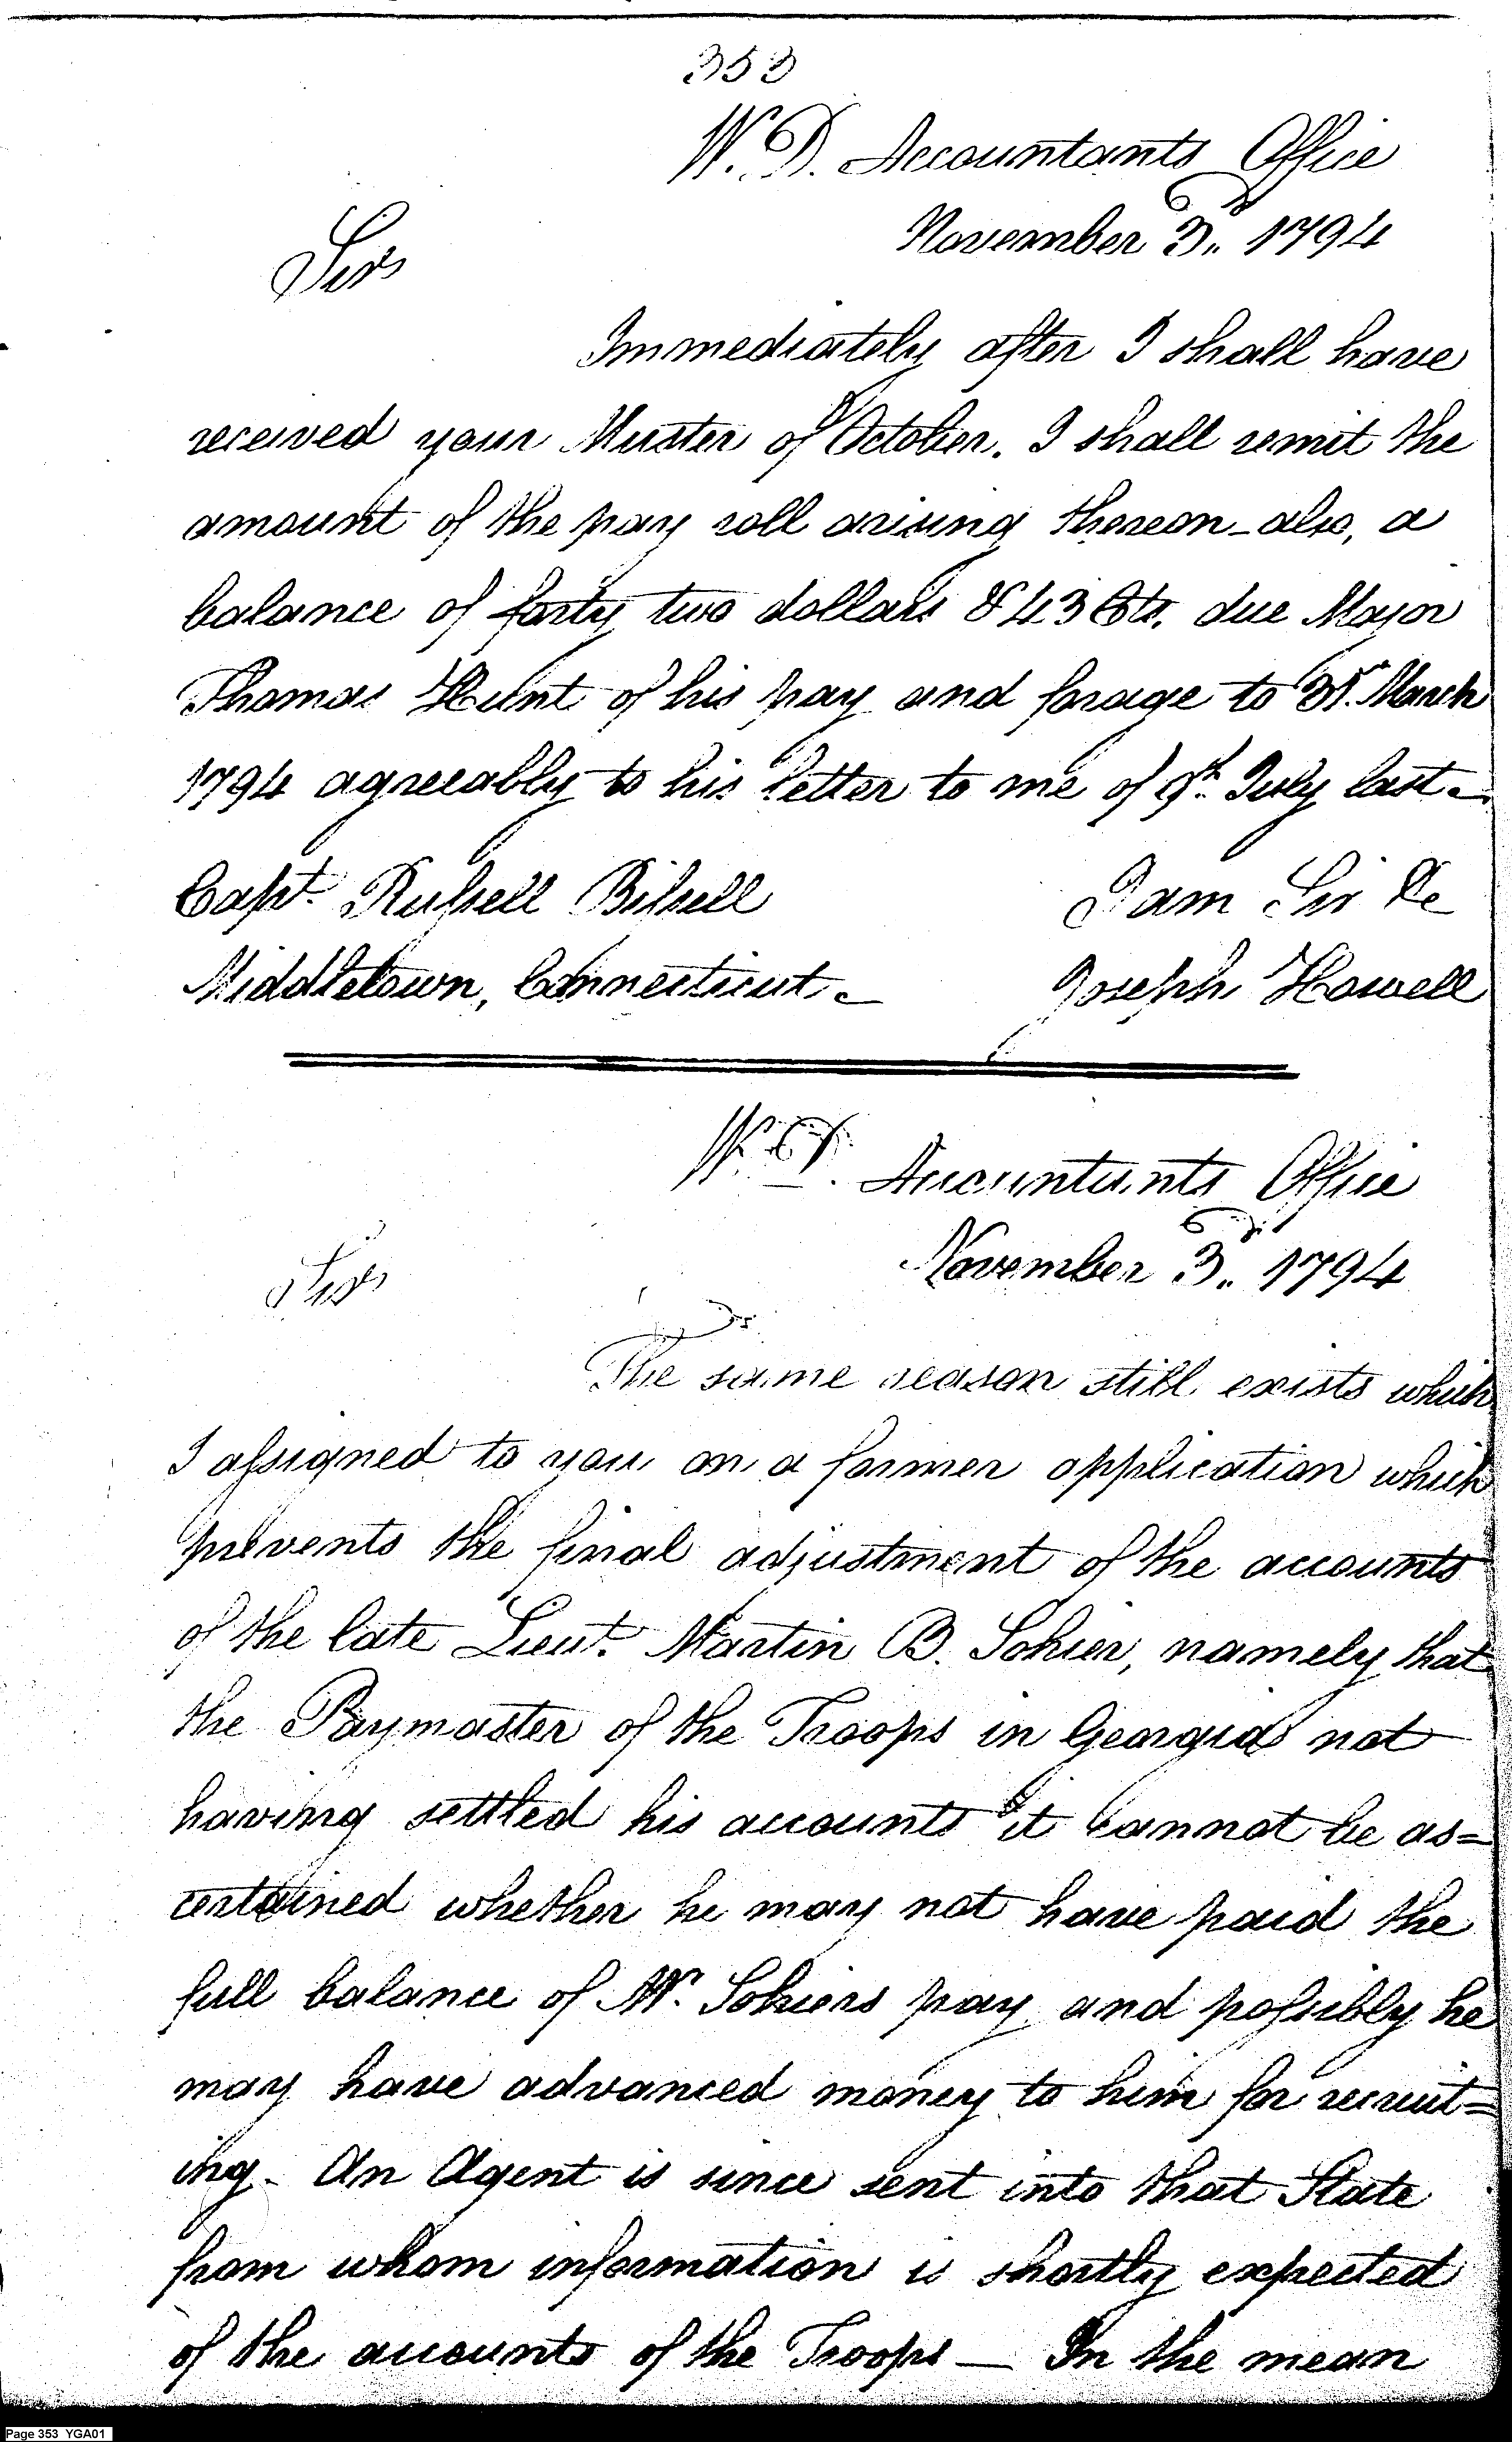 353
W. D. Accountants Office
November 3d. 1794
Sir
Immediately after I shall have
received your Muster of October. I shall remit the
amount of the pay roll arising thereon - also, a
balance of forty two dollars & 43 Cts. due Major
Thomas Hunt of his pay and forage to 31st. March
1794 agreeably to his letter to me of 9th. July last -
Capt. Russell Bissell
I am Sir &c
Middletown, Connecticut -
Joseph Howell
W. D. Accountants Office
November 3d. 1794
Sir
The same reason still exists which
I assigned to you on a former application which
prevents the final adjustment of the accounts
of the late Lieut. Martin B. Sohier, namely that
the Paymaster of the Troops in Georgia not
having settled his accounts it cannot be as=
certained whether he may not have paid the
full balance of Mr. Sohiers pay and possibly he
may have advanced money to him for recruit=
ing - An Agent is since sent into that State
from whom information is shortly expected
of the accounts of the Troops — In the mean
Page 353 YGA01